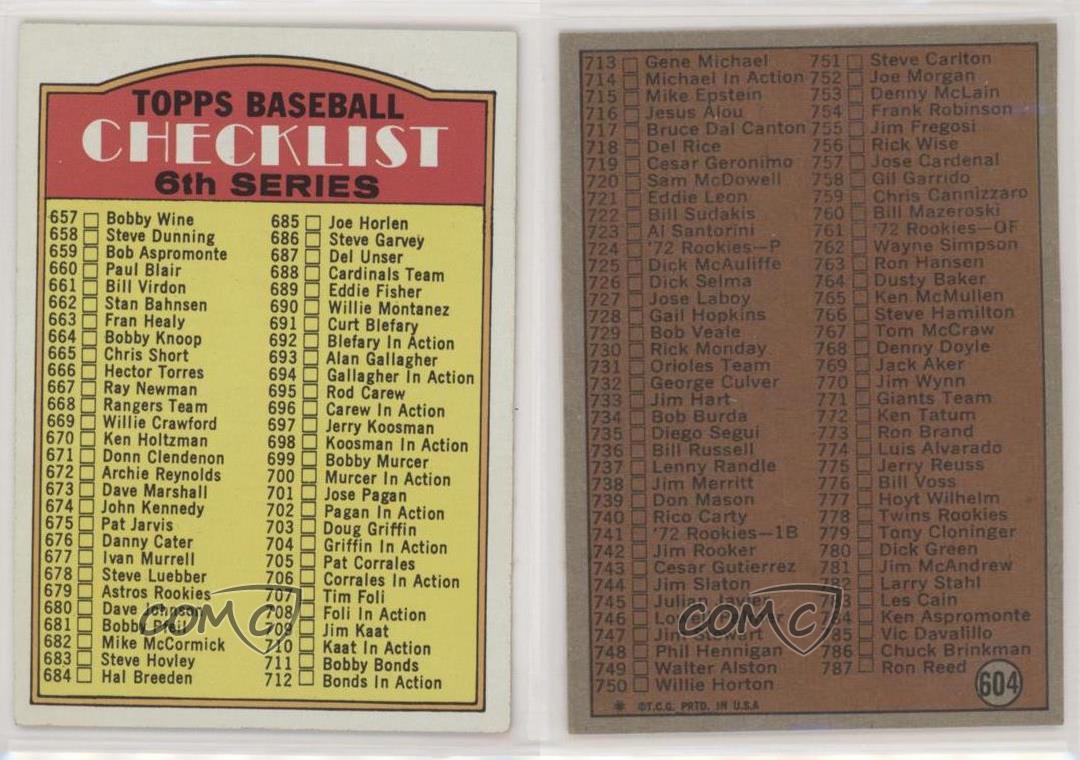 TOPPS BASEBALL
CHECKLIST
6th SERIES
657 Bobby Wine
658 Steve Dunning
659 Bob Aspromonte
660 Paul Blair
661 Bill Virdon
662 Stan Bahnsen
663 Fran Healy
664 Bobby Knoop
665 Chris Short
666 Hector Torres
667 Ray Newman
668 Rangers Team
669 Willie Crawford
670 Ken Holtzman
671 Donn Clendenon
672 Archie Reynolds
673 Dave Marshall
674 John Kennedy
675 Pat Jarvis
676 Danny Cater
677 Ivan Murrell
678 Steve Luebber
679 Astros Rookies
680 Dave Johnson
681 Bobby Pfeil
682 Mike McCormick
683 Steve Hovley
684 Hal Breeden
685 Joe Horlen
686 Steve Garvey
687 Del Unser
688 Cardinals Team
689 Eddie Fisher
690 Willie Montanez
691 Curt Blefary
692 Blefary In Action
693 Alan Gallagher
694 Gallagher In Action
695 Rod Carew
696 Carew In Action
697 Jerry Koosman
698 Koosman In Action
699 Bobby Murcer
700 Murcer In Action
701 Jose Pagan
702 Pagan In Action
703 Doug Griffin
704 Griffin In Action
705 Pat Corrales
706 Corrales In Action
707 Tim Foli
708 Foli In Action
709 Jim Kaat
710 Kaat In Action
711 Bobby Bonds
712 Bonds In Action
COMC
713 Gene Michael
714 Michael In Action
715 Mike Epstein
716 Jesus Alou
717 Bruce Dal Canton
718 Del Rice
719 Cesar Geronimo
720 Sam McDowell
721 Eddie Leon
722 Bill Sudakis
723 Al Santorini
724 '72 Rookies—P
725 Dick McAuliffe
726 Dick Selma
727 Jose Laboy
728 Gail Hopkins
729 Bob Veale
730 Rick Monday
731 Orioles Team
732 George Culver
733 Jim Hart
734 Bob Burda
735 Diego Segui
736 Bill Russell
737 Lenny Randle
738 Jim Merritt
739 Don Mason
740 Rico Carty
741 '72 Rookies—1B
742 Jim Rooker
743 Cesar Gutierrez
744 Jim Slaton
745 Julian Javier
746
747 Jim
748 Phil Hennigan
749 Walter Alston
750 Willie Horton
751 Steve Carlton
752 Joe Morgan
753 Denny McLain
754 Frank Robinson
755 Jim Fregosi
756 Rick Wise
757 Jose Cardenal
758 Gil Garrido
759 Chris Cannizzaro
760 Bill Mazeroski
761 '72 Rookies—OF
762 Wayne Simpson
763 Ron Hansen
764 Dusty Baker
765 Ken McMullen
766 Steve Hamilton
767 Tom McCraw
768 Denny Doyle
769 Jack Aker
770 Jim Wynn
771 Giants Team
772 Ken Tatum
773 Ron Brand
774 Luis Alvarado
775 Jerry Reuss
776 Bill Voss
777 Hoyt Wilhelm
778 Twins Rookies
779 Tony Cloninger
780 Dick Green
781 Jim McAndrew
782 Larry Stahl
Les Cain
Ken Aspromonte
785 Vic Davalillo
786 Chuck Brinkman
787 Ron Reed
604
* ©T.C.G. PRTD. IN U.S.A
COMC